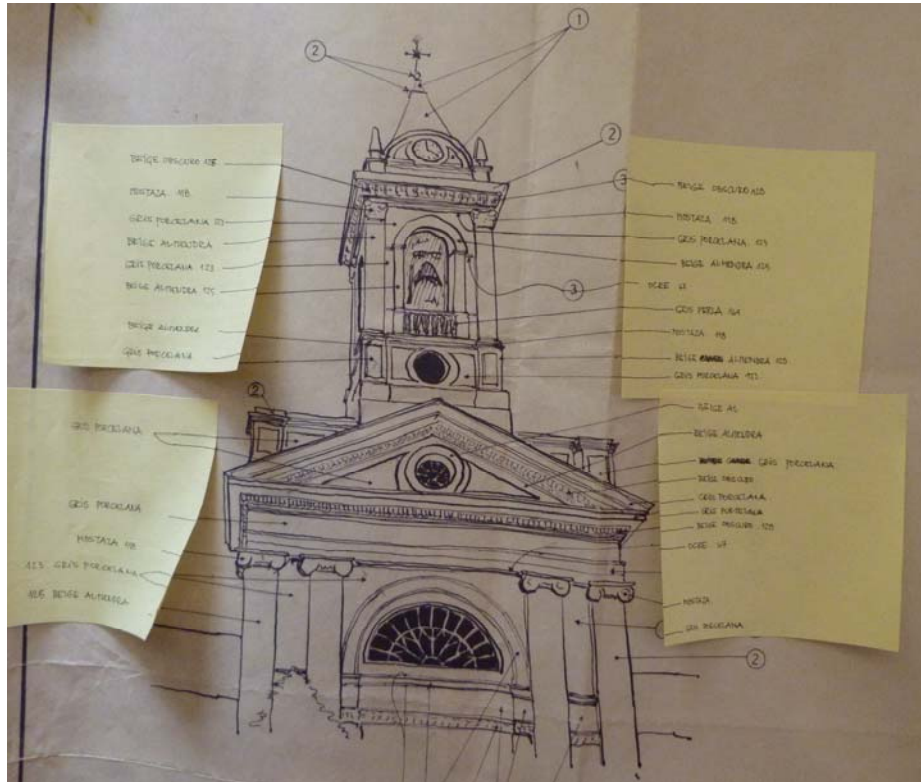 1
2
2
3
BEIGE OBSCURO 128
MOSTAZA 118
GRIS PORCELANA 123
BEIGE ALMENDRA
GRIS PORCELANA 123
BEIGE ALMENDRA 125
BEIGE ALMENDRA
GRIS PORCELANA
BEIGE OBSCURO 128
MOSTAZA 118
GRIS PORCELANA 123
BEIGE ALMENDRA 125
3
OCRE 61
GRIS PERLA
MOSTAZA 118
BEIGE ALMENDRA 125
GRIS PORCELANA 123
2
GRIS PORCELANA
GRIS PORCELANA
MOSTAZA 118
123 GRIS PORCELANA
125 BEIGE ALMENDRA
BEIGE AL
BEIGE ALMENDRA
GRIS PORCELANA
BEIGE OBSCURO
GRIS PORCELANA
GRIS PORCELANA
BEIGE OBSCURO 128
OCRE 61
MOSTAZA
GRIS PORCELANA
2